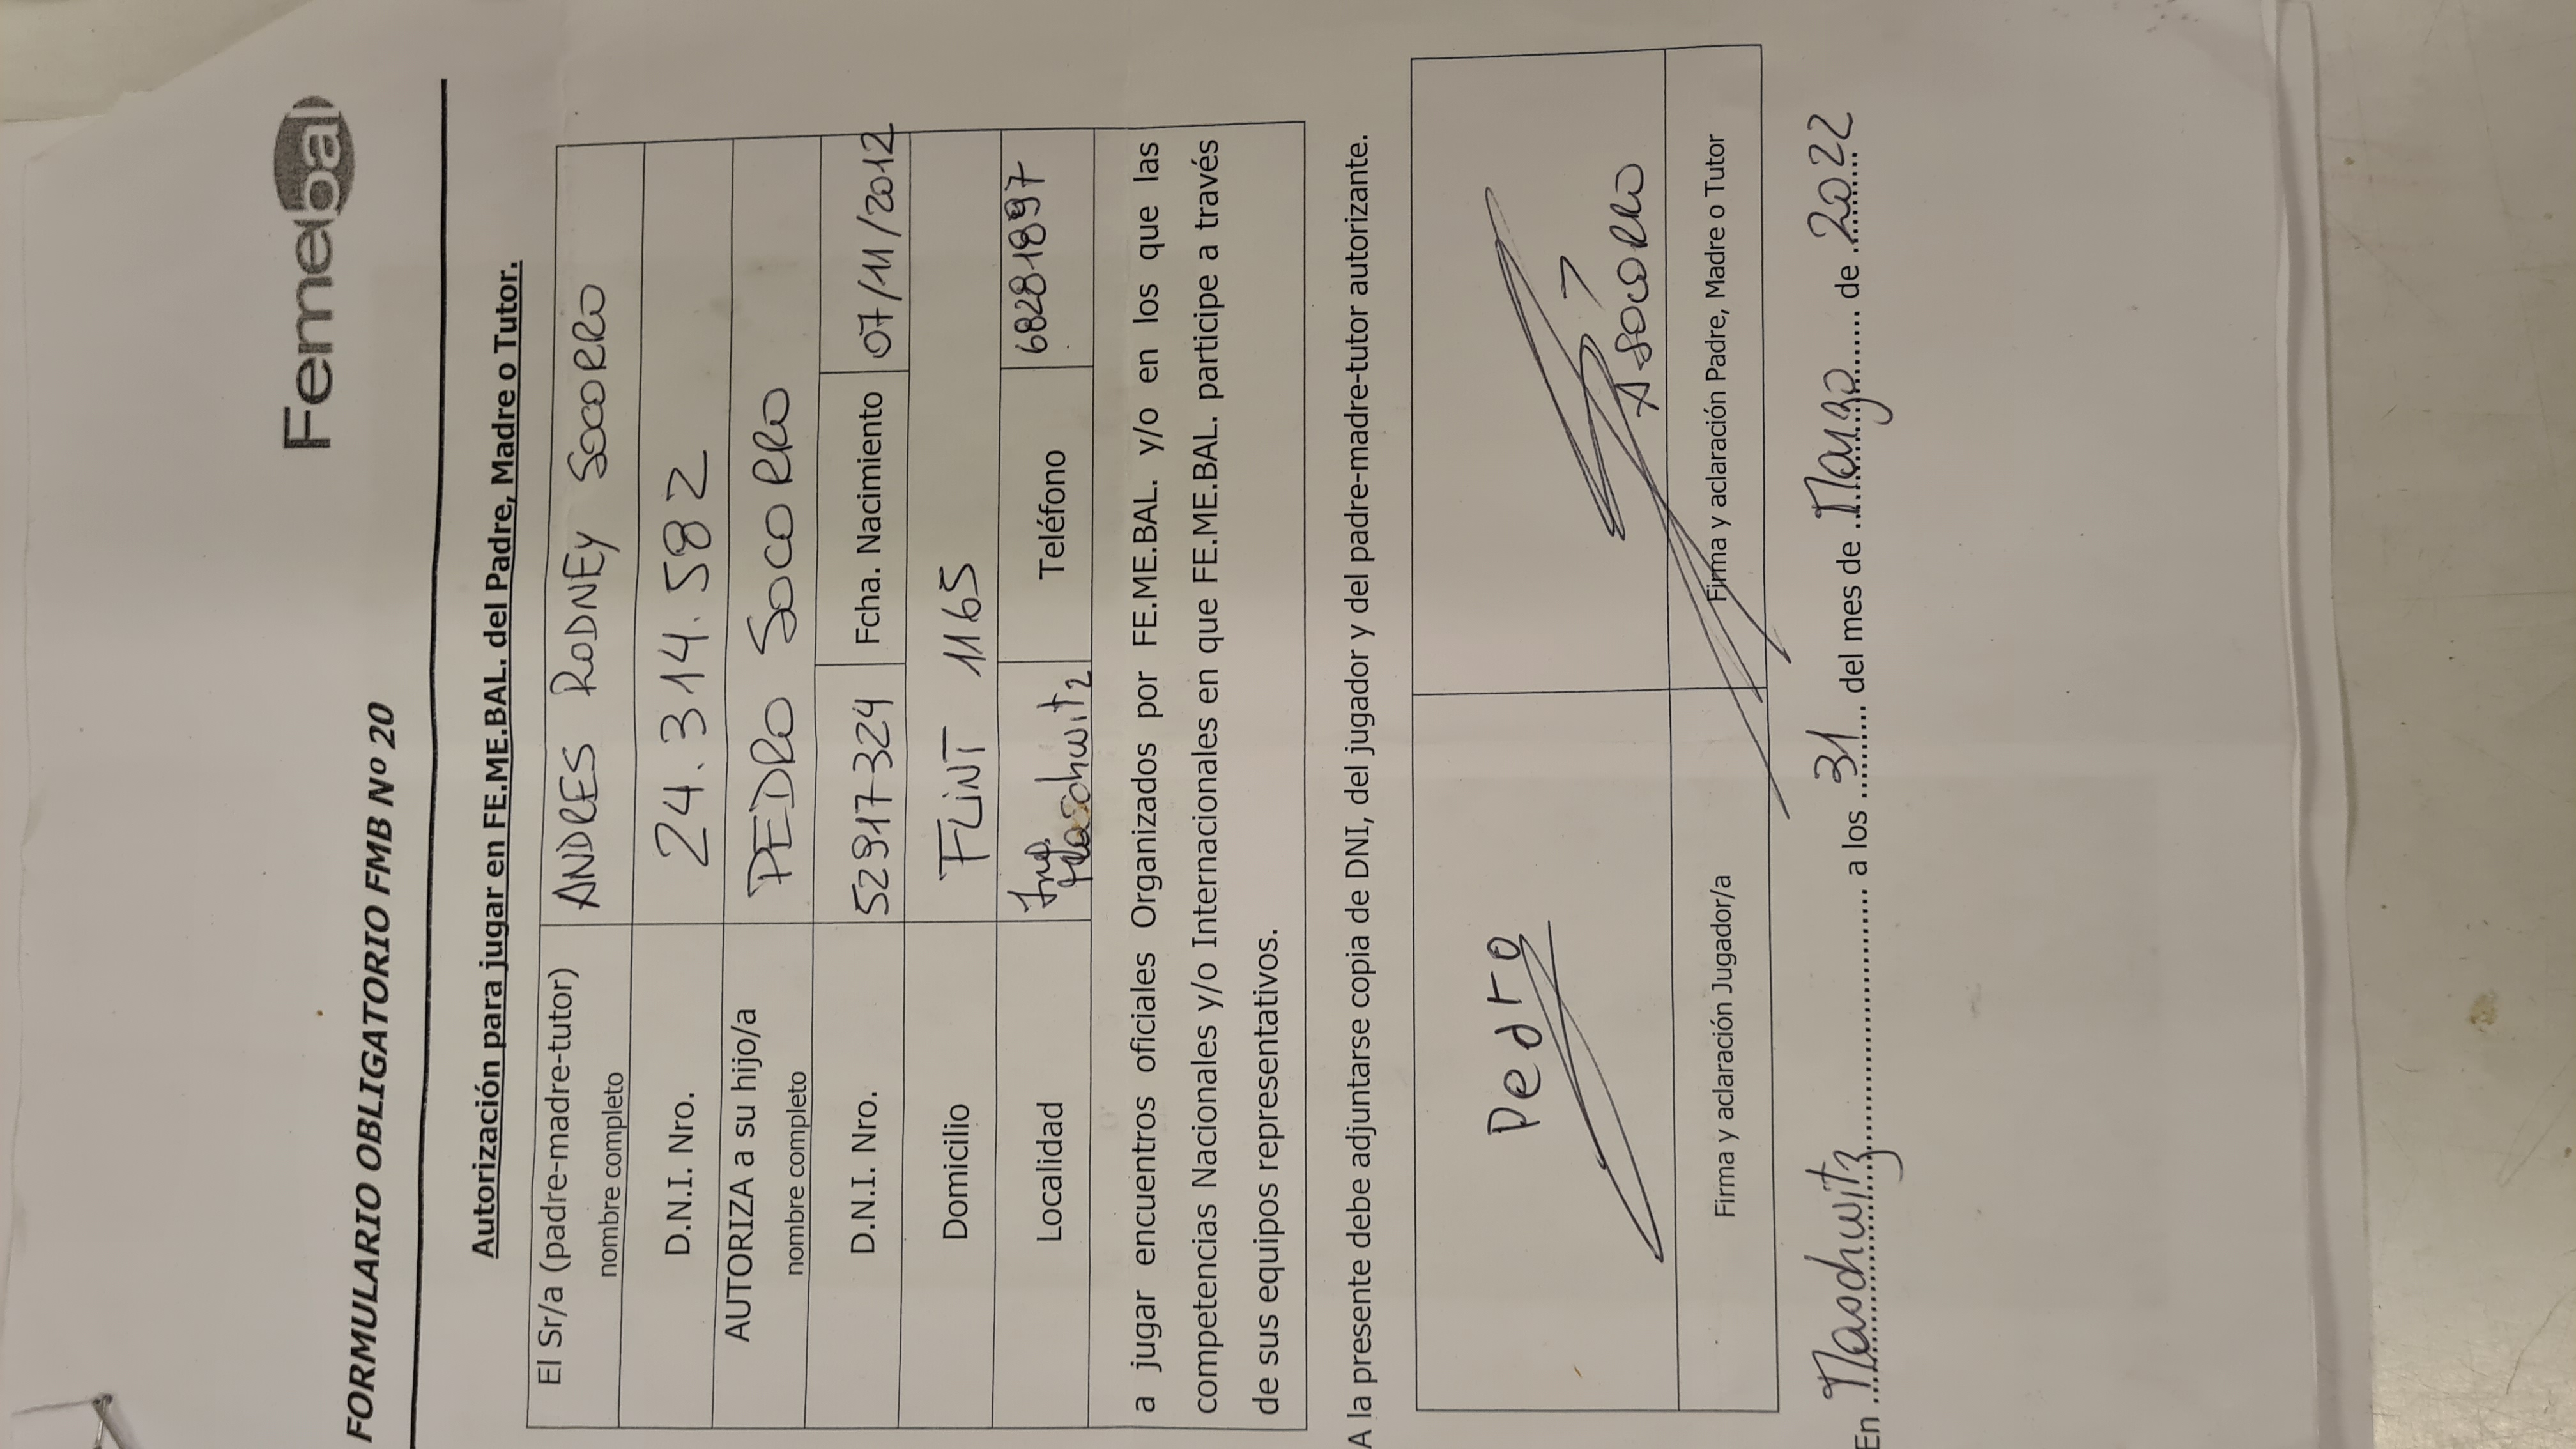 Femebal
FORMULARIO OBLIGATORIO FMB Nº 20
Autorización para jugar en FE.ME.BAL. del Padre, Madre o Tutor.
El Sr/a (padre-madre-tutor) nombre completo ANDRES RODNEY SOCORRO
D.N.I. Nro. 24.314.582
AUTORIZA a su hijo/a nombre completo PEDRO SOCORRO
D.N.I. Nro. 52917324 Fcha. Nacimiento 07/11/2012
Domicilio FLINT 1165
Localidad Ing. Maschwitz Teléfono 68281897
a jugar encuentros oficiales Organizados por FE.ME.BAL. y/o en los que las
competencias Nacionales y/o Internacionales en que FE.ME.BAL. participe a través
de sus equipos representativos.
A la presente debe adjuntarse copia de DNI, del jugador y del padre-madre-tutor autorizante.
Pedro A SOCORRO
Firma y aclaración Jugador/a Firma y aclaración Padre, Madre o Tutor
En Maschwitz a los 31 del mes de Marzo de 2022